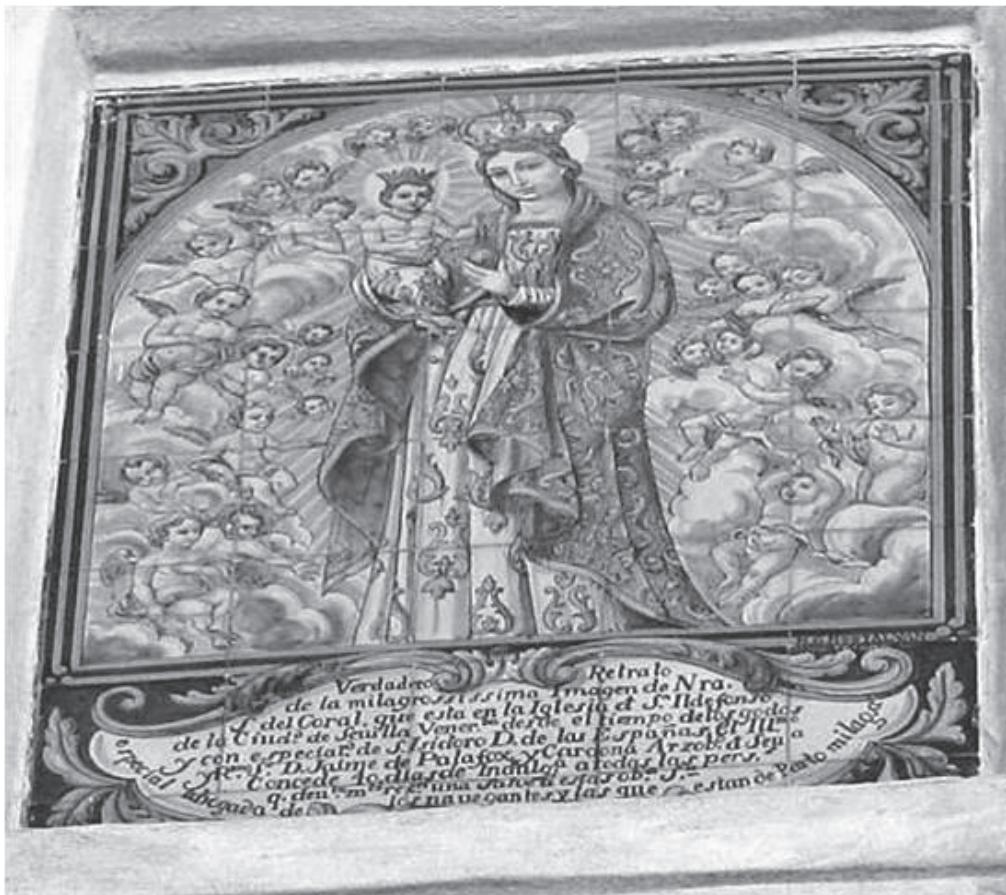 Verdadero Retrato
de la milagrossissima Imagen de Nra.
S.ª del Coral, que esta en la Iglesia d S.n Ildefonso
de la Ciud.d de Sevilla Vener.da desde el tiempo de los godos
y con especial.d de S. Isidoro D. de las Españas, el Ill.mo
y R.mo S. D. Jaime de Palafox, y Cardona Arzob. d Sev.a
Concede 40 dias de Indulg.a a todas las pers.
q. una Salve esta
especial Abogada de los navegantes y las que estan de Parto milag